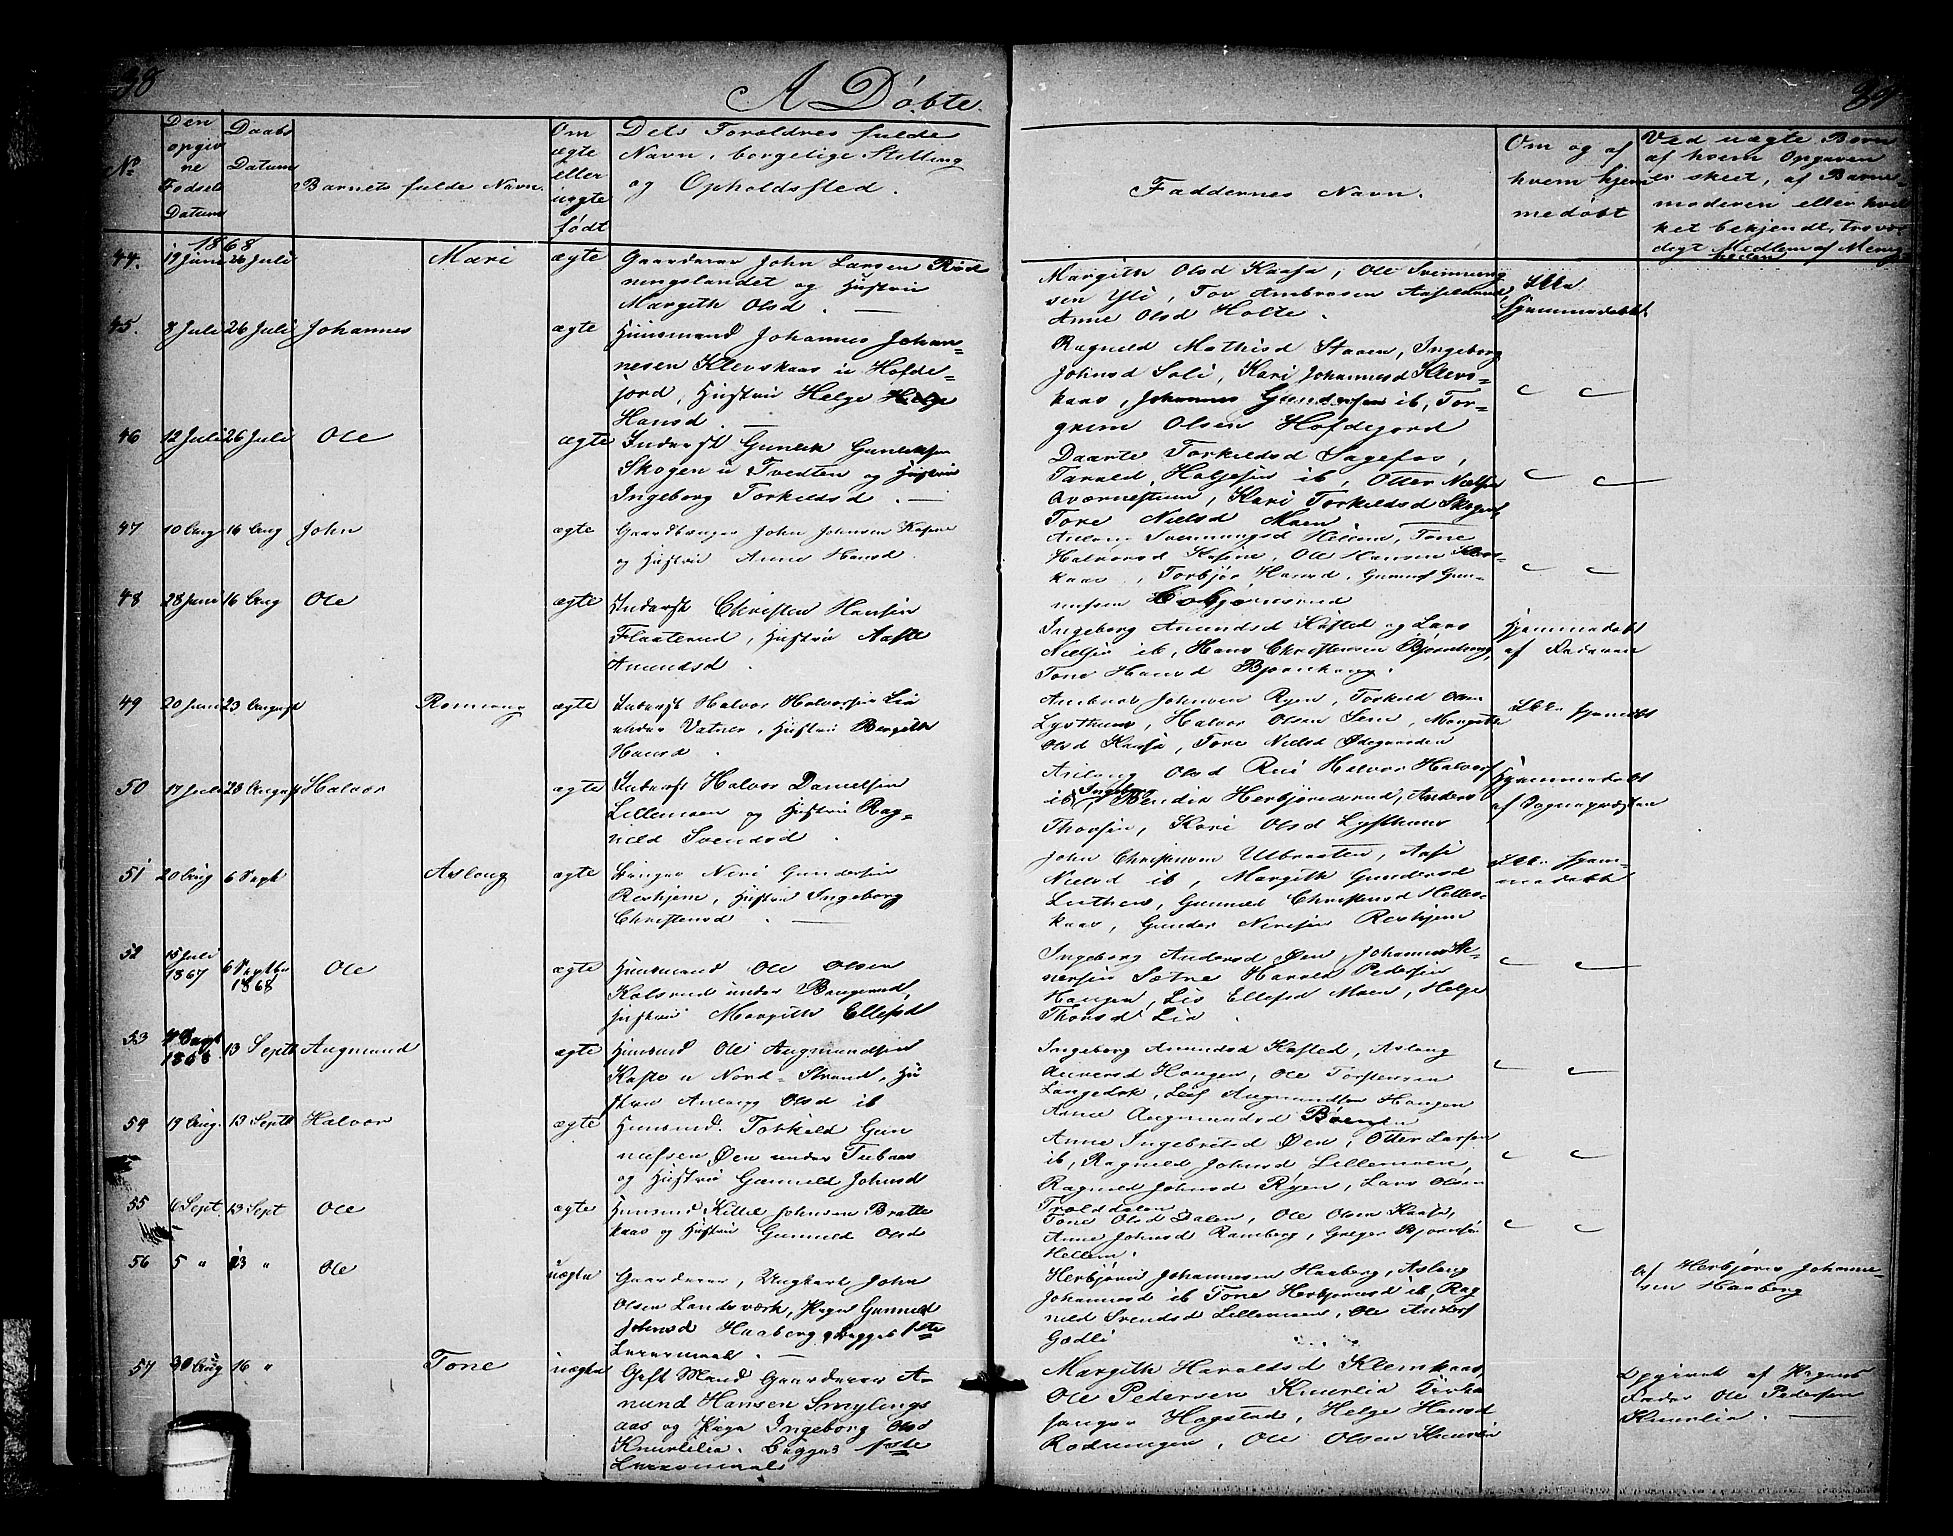 38
A Døbte.
39
No
Den opgivne Fødsels Datum
Daabs Datum
Barnets fulde Navn.
Om ægte eller uægte født
Dets Forældres fulde
Navn, borgelige Stilling
og Opholdssted.
Faddernes Navn.
Om og af hvem hjemmedøbt
Ved uægte Børn
af hvem Opgaven
er skeet, af Barnemoderen eller hvilket bekjendt, troværdigt Medlem af Menigheden
1868
44. 19 Juni 26 Juli Mari ægte
Gaardbruger John Larsen Rødningslandet og Hustru
Margith Olsd.
Margith Olsd Kaasa, Ole Svennung
sen Yli, Tov Ambrosen
Anne Olsd Holte.
Ikke
hjemmedøbt.
45. 8 Juli 26 Juli Johannes ægte
Huusmand Johannes Johan=
nesen Klevskaas u Hofde=
jord, Hustru Helge Helge
Hansd.
Ragnild Mathisd Staaen, Ingeborg
Johnsd Soli, Kari Johannesd Klevs=
kaas, Johannes Gundersen ib, Tor=
grim Olsen Hofdejord
46 12 Juli 26 Juli Ole ægte
Inderst Gunlek Gunleksen
Skogen u Tvedten og Hustru
Ingeborg Torkildsd.
Daarte Torkildsd Sagefos,
Tarald Holjesen ib, Otter Nielsen
Kari Torkildsd Skogen,
Tore Nielsd Moen
47 10 Aug 16 Aug John ægte
Gaardbruger John Johnsen Kasine
og Hustru Anne Hansd.
Svennungsd Tone
Halvorsd Kasine, Ole Hansen Klevs-
kaas, Torbjør Hansd, Gunnuf Gun-
nufsen
48 28 Juni 16 Aug Ole ægte
Inderst Christen Hansen
Flaaterud, Hustru Aaste
Amundsd.
Ingeborg Amundsd Kasted og Lars
Nielsen ib, Hans Christensen Bjørnberg,
Tone Hansd Bjørnberg.
Hjemmedøbt
af Faderen
49 20 Juni 23 August Romaug ægte
Inderst Halvor Halvorsen Lia
under Vatnar, Hustru Bergith
Hansd.
Ambros Johnsen Ryen, Torkild Olsen
Lysthuus, Halvor Olsen Sem, Margith
Olsd Kaasa, Tore Nielsd Ødegaarden
Ikke hjemdøbt
50 17 Juli 23 August Halvor ægte
Inderst Halvor Danielsen
Lillemoen og Hustru Rag=
nild Svendsd.
Aslaug Olsd Rui Halvor Halvors
ib, Ingeborg Bendix Herbjørnsrud, Anders
Thorsen, Kari Olsd Lysthuus
Hjemmedøbt
af Sognepræsten
51 20 Aug 6 Sept Aslaug ægte
Neri Gundersen
Reshjem, Hustru Ingeborg
Christensd.
John Christensen Ulbrasten, Aase
Nielsd ib, Margith Gundersd
Gunild Christensd Helles-
kaas, Gunder Nerisen Reshjem
Ikke hjem-
medøbt
52 15 Juli 1867 6 Septbr 1868 Ole ægte
Huusmand Ole Olsen
Kolsrud under Bangerud,
Hustru Margith Ellefsd
Ingeborg Andersd Øen, Johannes
Sætre Harald Pedersen
Haugen, Liv Ellefsd Moen, Helge
Thorsd Lia.
53 4 Sept 1868 13 Septb Augmund ægte
Huusmd Ole Augmundsen
Kaste u Nord=Strand, Hu
stru Aslaug Olsd ib
Ingeborg Amundsd Kasted, Aslaug
Haugen, Ole Torstensen
Langedok, Leif Augmundsen Haugen
Anne Augmundsd Bøen
54 19 Aug. 13 Septb Halvor ægte
Huusmd. Torkild Gun
nufsen Øen under Tubaas
og Hustru Gunnild Johnsd
Anne Ingebritsd Øen, Otter Larsen
ib, Ragnild Johnsd Lillemoen,
Ragnild Johnsd Ryen, Lars Olsen
Trolddalen
55 6 Sept. 13 Sept Ole ægte
Huusmd Kittil Johnsen Bratte
kaas og Hustru Gunnild Olsd
Tone Olsd Dalen, Ole Olsen Kaasa,
Anne Johnsd Ramberg, Greger Bjørnsen
Hellem.
56 5 " 13 " Ole uægte
Gaardbruger, Ungkarl John
Olsen Landsværk, Pigen Gunnild
Johnsd Haaberg, begges 1ste
Leiermaal.
Herbjørn Johannesen Haaberg, Aslaug
Johannesd ib Tone Herbjørnsd ib, Rag
nild Svendsd Lillemoen, Ole Anders
Godli
af Herbjørn Johanne=
sen Haaberg
57 30 Aug 16 " Tone uægte
Gift Mand Gaardbruger A-
mund Hansen Smylings
aas og Pige Ingeborg Olsd
Knurlia. Begges 1ste
Leiermaal
Margith Haraldsd Klemkaas
Ole Pedersen Knurlia Kirke
sanger Hogstad, Helge Hansd
Rodningen, Ole Olsen Knurlia
Opgivet af Pigens
Fader Ole Pedersen
Knurlia.